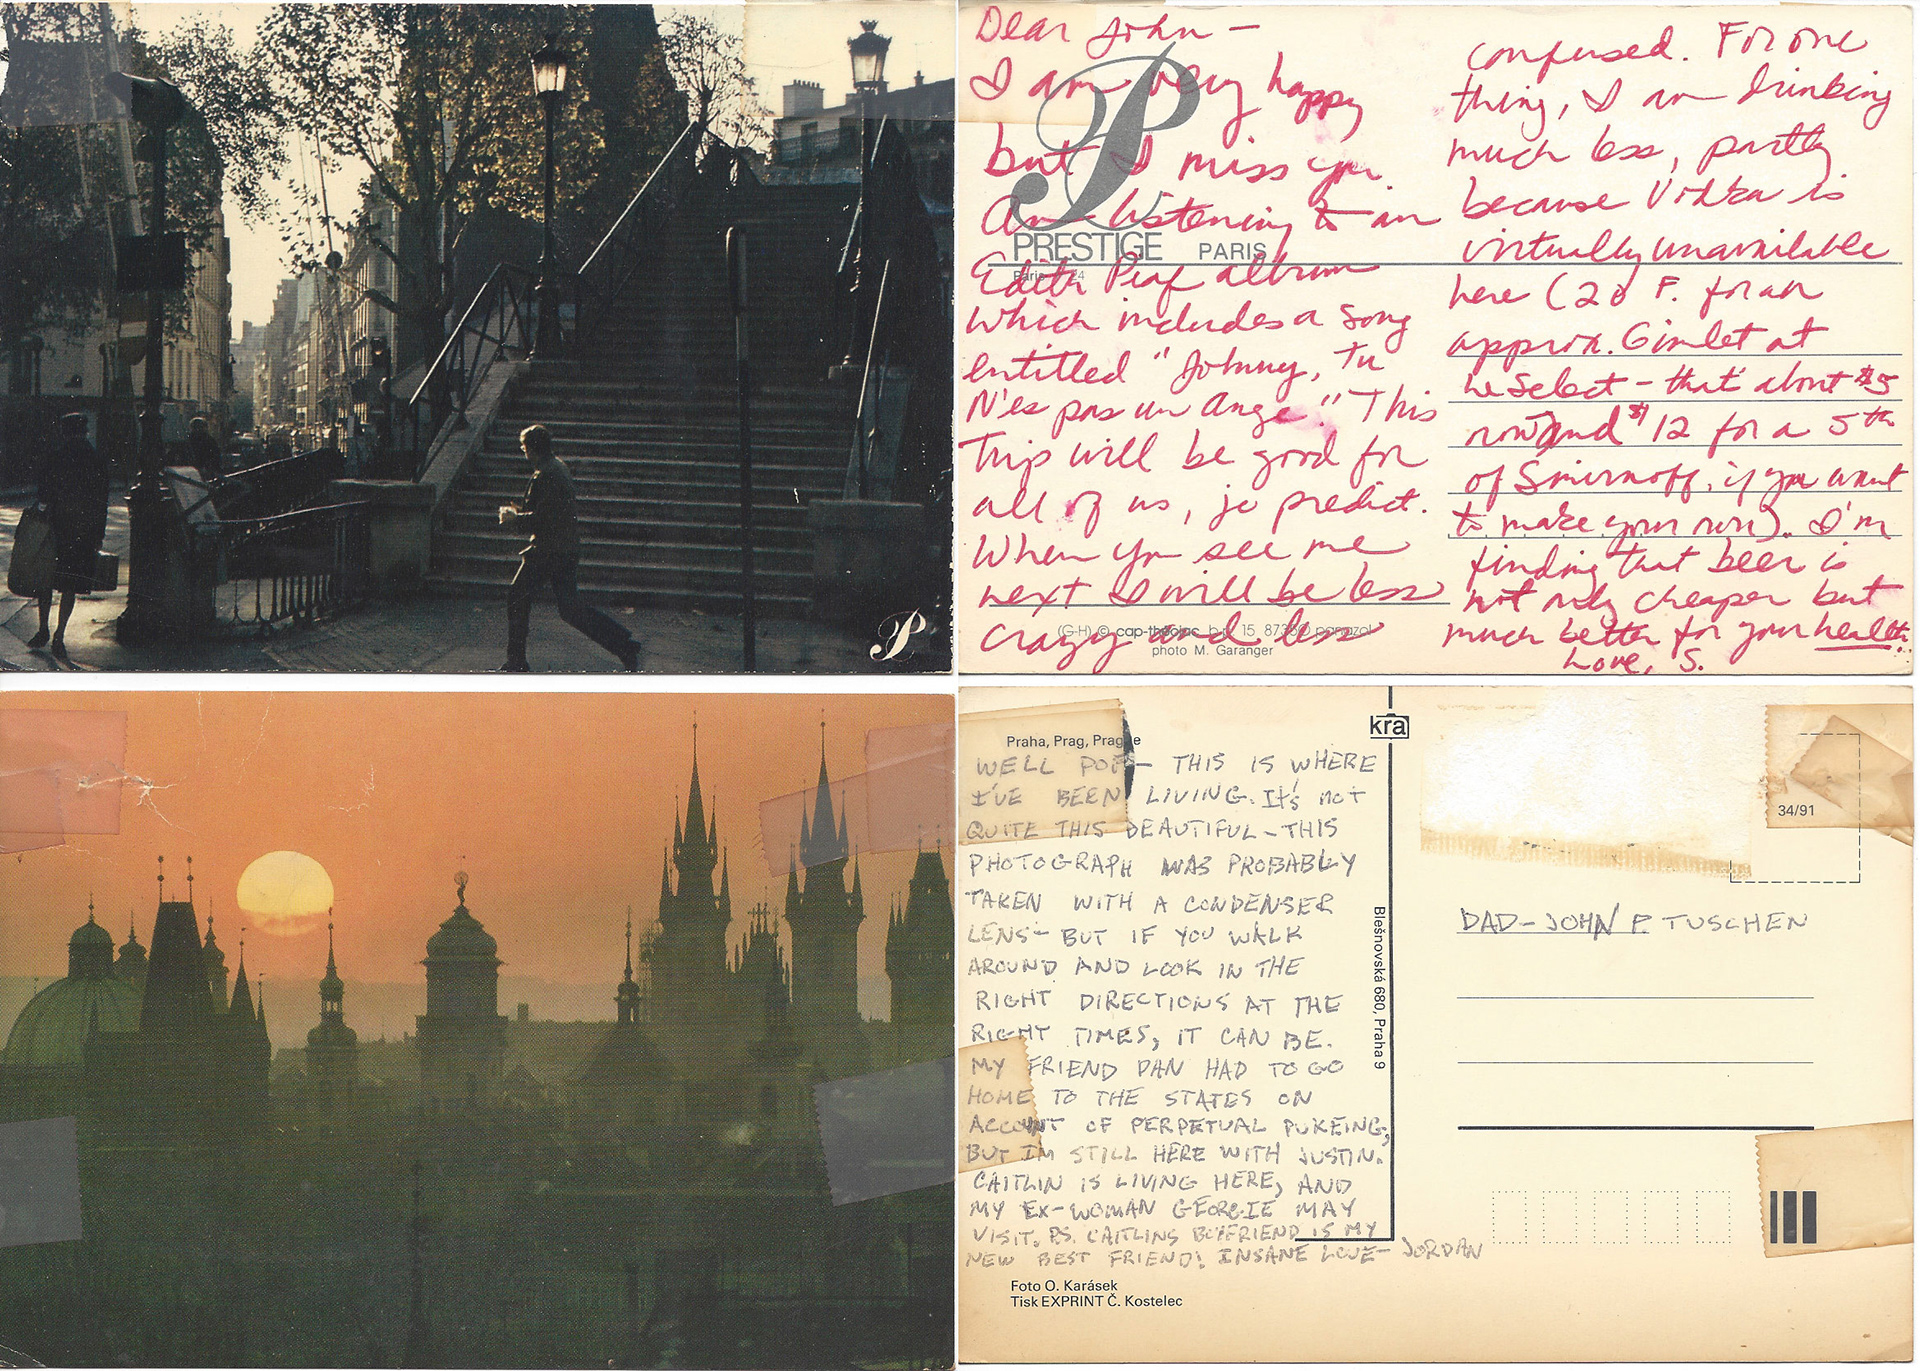 P
Dear John –
I am very happy
but I miss you.
Am listening to an
Edith Piaf album
which includes a song
entitled "Johnny, Tu
N'es pas un Ange." This
Trip will be good for
all of us, je predict.
When you see me
next I will be less
crazy and less
confused. For one
thing, I am drinking
much less, partly
because Vodka is
virtually unavailable
here (20 F. for an
approx. Gimlet at
Le Select – that's about $5
now and $12 for a 5th
of Smirnoff, if you want
to make your own). I'm
finding that beer is
not only cheaper but
much better for your health.
Love, S.
P
PRESTIGE PARIS
Paris
(G-H) © cap-théojac b.p. 15 87350 panazol
photo M. Garanger
Praha, Prag, Prague
WELL POP – THIS IS WHERE
I'VE BEEN LIVING. It's not
QUITE THIS BEAUTIFUL – THIS
PHOTOGRAPH WAS PROBABLY
TAKEN WITH A CONDENSER
LENS – BUT IF YOU WALK
AROUND AND LOOK IN THE
RIGHT DIRECTIONS AT THE
RIGHT TIMES, IT CAN BE.
MY FRIEND DAN HAD TO GO
HOME TO THE STATES ON
ACCOUNT OF PERPETUAL PUKEING,
BUT I'M STILL HERE WITH JUSTIN.
CAITLIN IS LIVING HERE, AND
MY EX-WOMAN GEORGIE MAY
VISIT. PS. CAITLINS BOYFRIEND IS MY
NEW BEST FRIEND! INSANE LOVE – JORDAN
Foto O. Karásek
Tisk EXPRINT Č. Kostelec
kra
Blešnovská 680, Praha 9
34/91
DAD – JOHN P. TUSCHEN